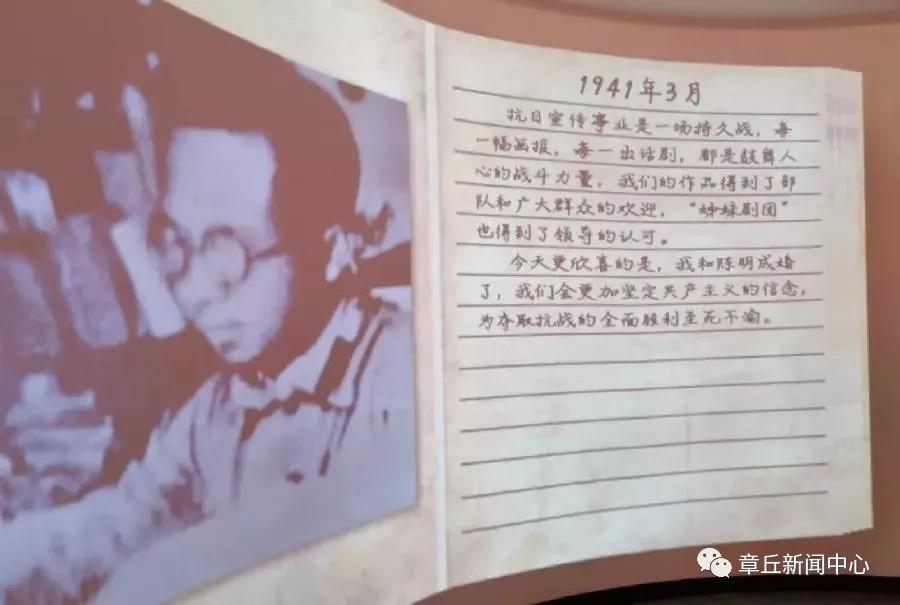 1941年3月
抗日宣传事业是一场持久战，每
一幅画报，每一出话剧，都是鼓舞人
心的战斗力量，我们的作品得到了部
队和广大群众的欢迎，“姊妹剧团”
也得到了领导的认可。
今天更欣喜的是，我和陈明成婚
了，我们会更加坚定共产主义的信念，
为夺取抗战的全面胜利至死不渝。
章丘新闻中心